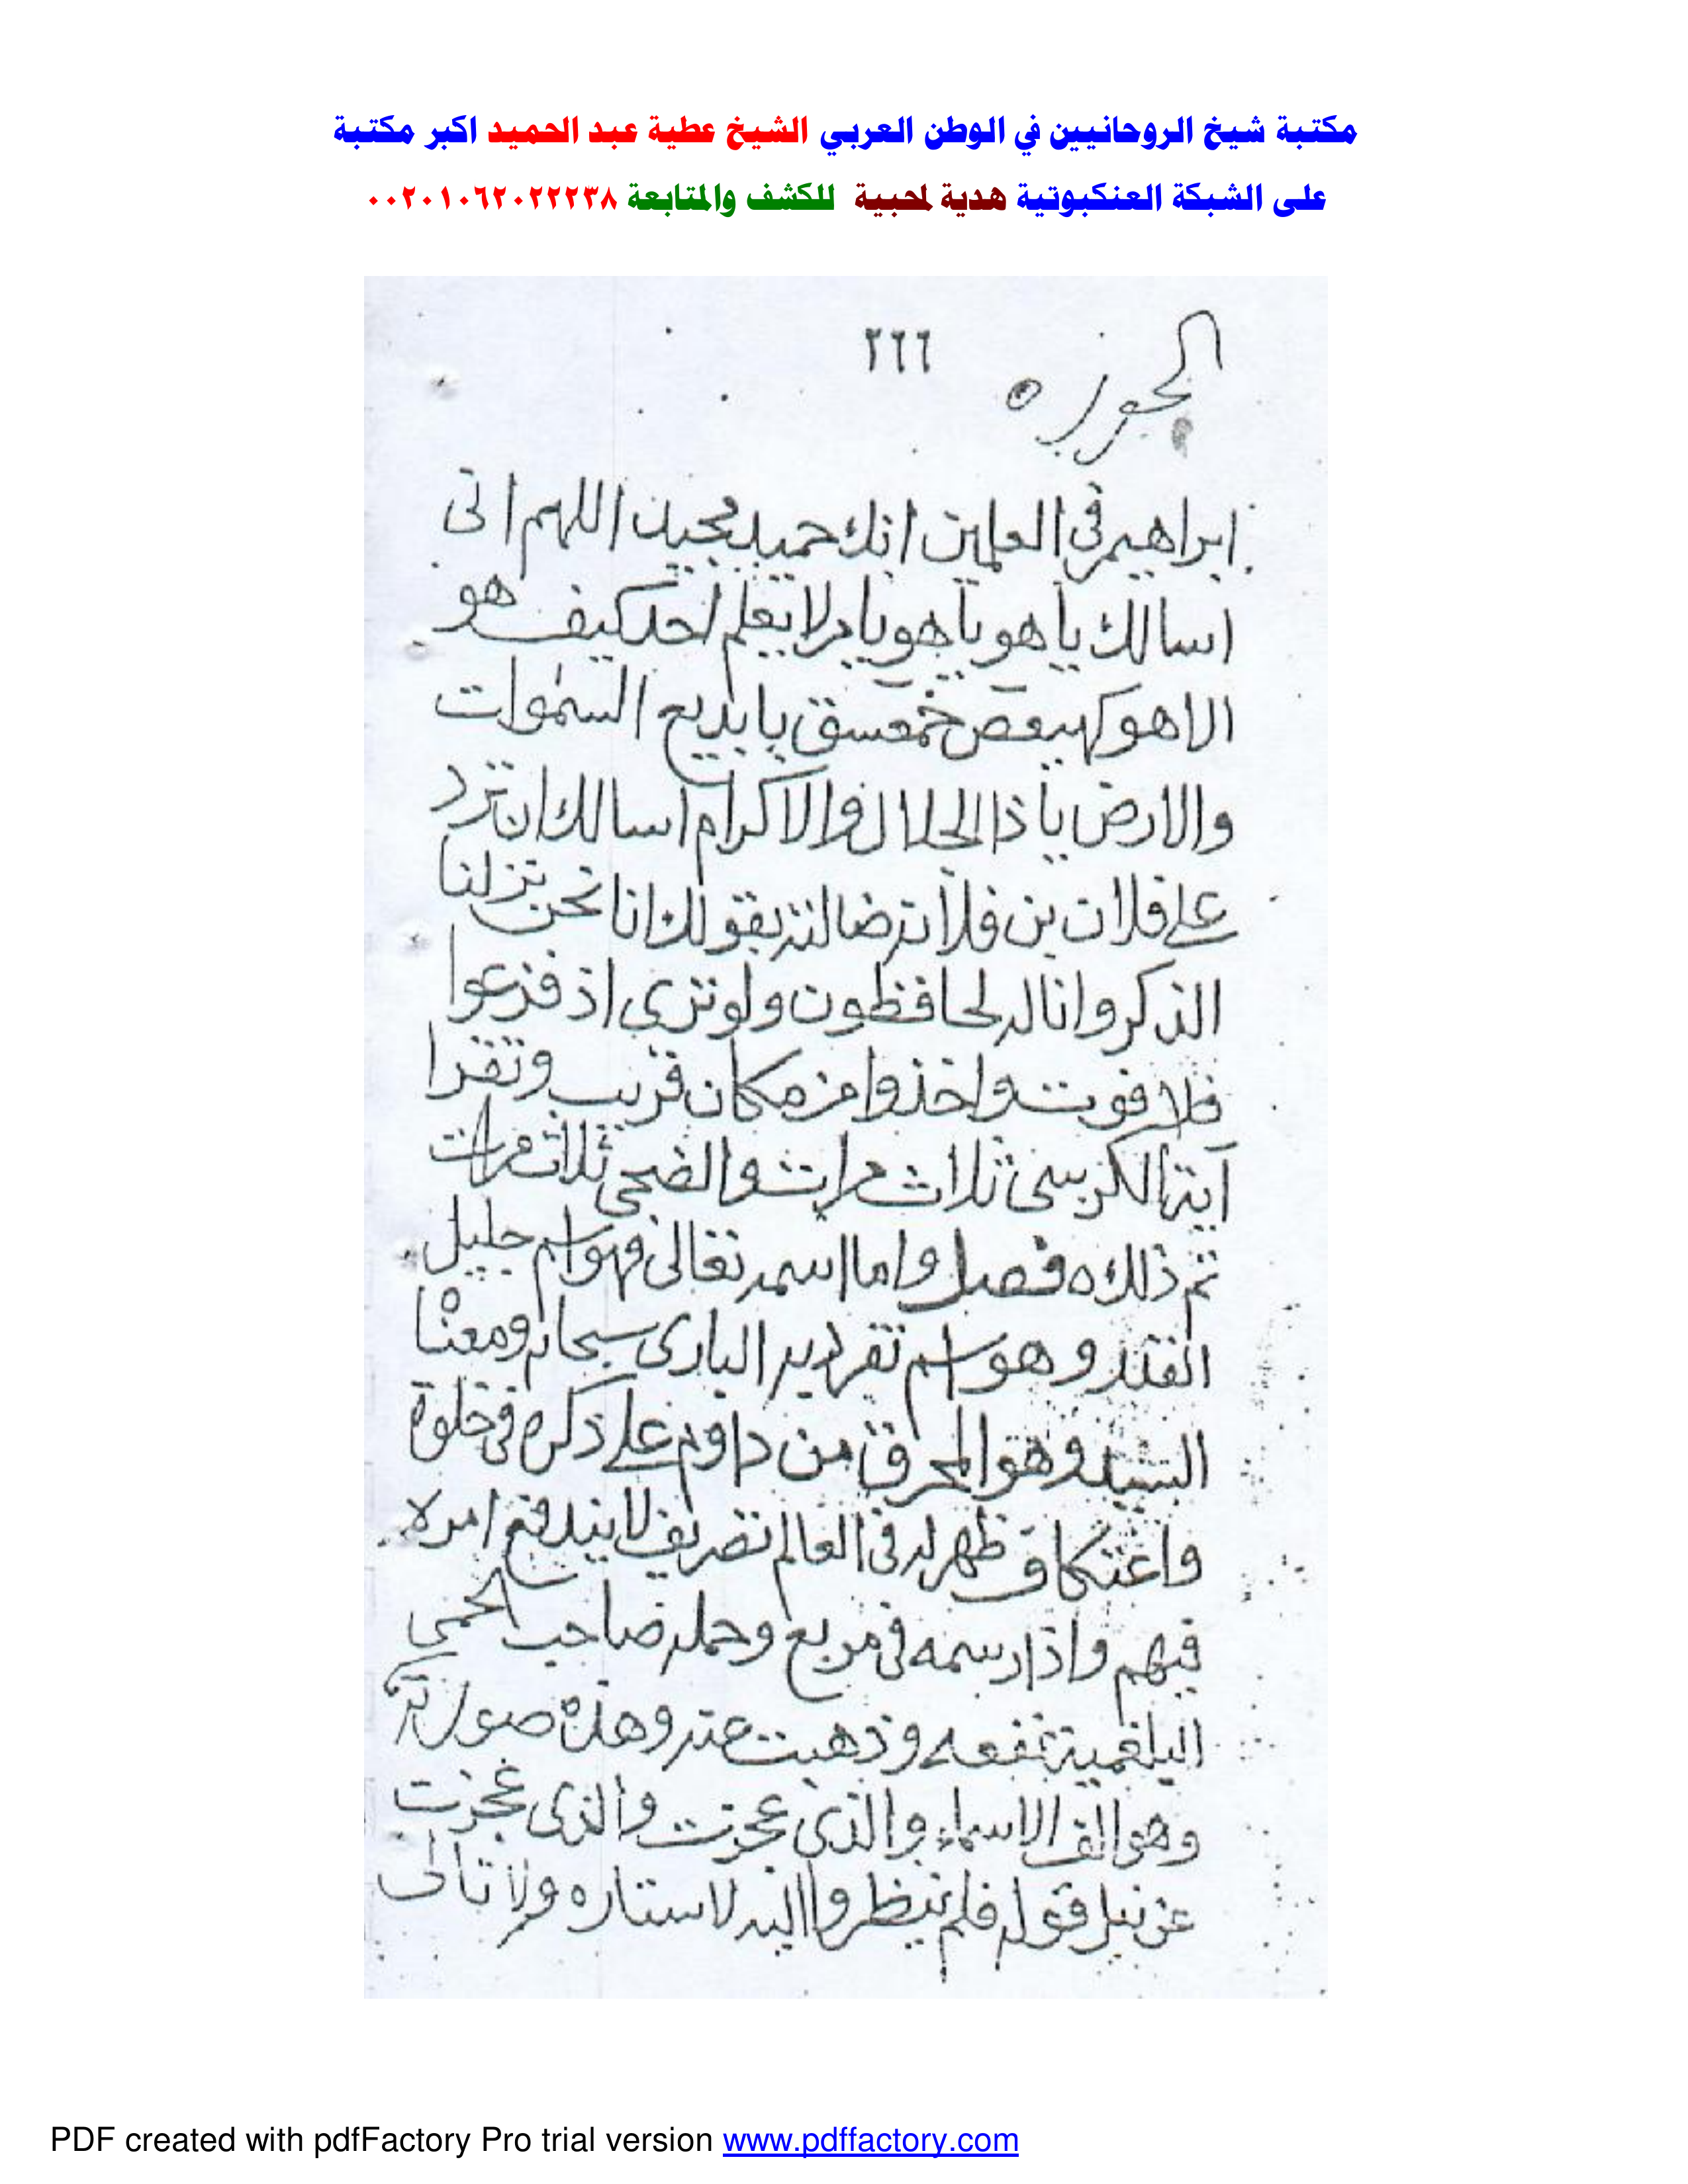 مكتبة شيخ الروحانيين في الوطن العربي الشيخ عطية عبد الحميد اكبر مكتبة
على الشبكة العنكبوتية هدية لمحبية للكشف والمتابعة ٠٠٢٠١٠٦٢٠٢٢٢٣٨
٢٦٦
ابراهيم في العلمين انك حميد مجيد اللهم انى
اسالك يا هو يا هو يا من لا يعلم احد كيف هو
الا هو كهيعص حمعسق يا بديع السموات
والارض يا ذا الجلال والاكرام اسالك ان ترد
على فلان بن فلانة ضالته بقولك انا نحن نزلنا
الذكر وانا له لحافظون ولو ترى اذ فزعوا
فلا فوت واخذوا من مكان قريب وتقرا
آية الكرسى ثلاث مرات والضحى ثلاث مرات
تم ذلك ه فصل واما اسمه تعالى فهو اسم جليل
القدر وهو اسم تفرد به البارى سبحانه ومعناه
السيد وهو المحرق من داوم على ذكره فى خلوة
واعتكاف ظهر له فى العالم تصريف لا يندفع امره
فيهم واذا رسمه فى مربع وحمله صاحب الحمى
البلغمية تنفعه وذهبت عنه وهذه صورته
وهو الف الاسماء والذى عجزت والذى عجزت
عن نيل فلم ينظروا اليه لاستاره ولا
PDF created with pdfFactory Pro trial version www.pdffactory.com